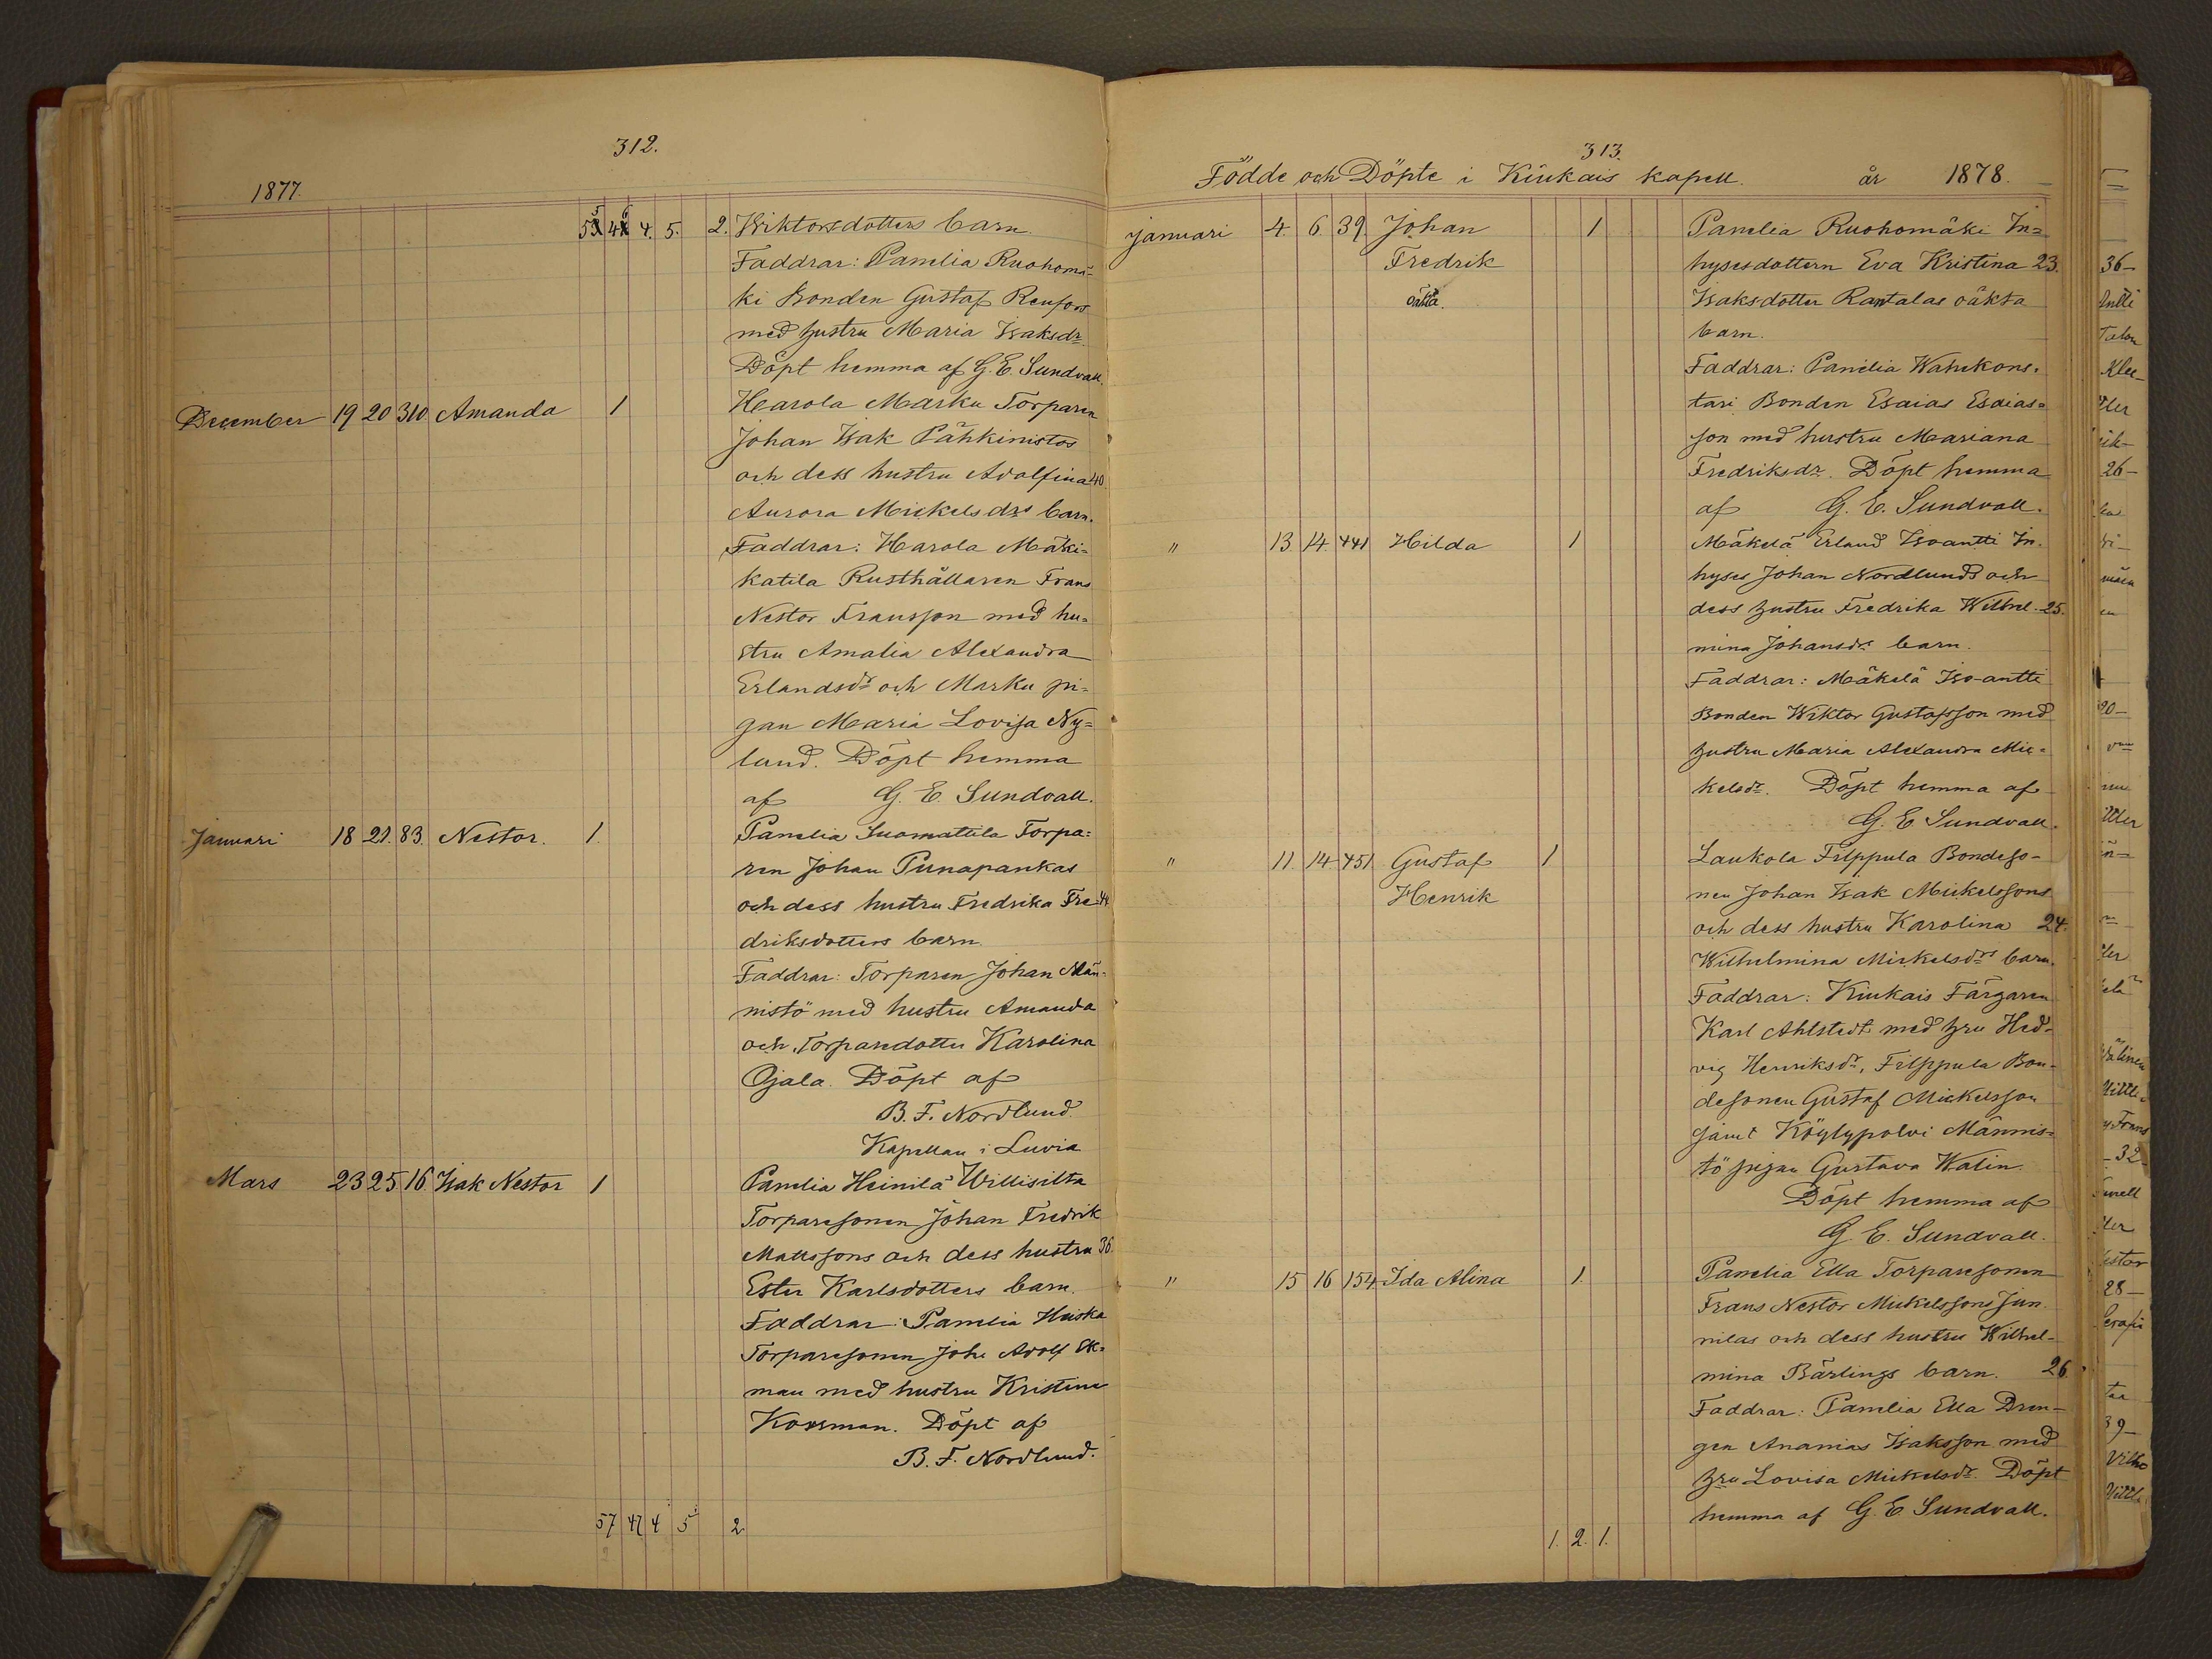 312.
1877.
55 46 4. 5. 2. Wiktorsdotters barn.
Faddrar: Panelia Ruohomä-
ki Bonden Gustaf Renfors
med hustru Maria Isaksdr.
Döpt hemma af G. E. Sundvall.
December 19 20 310. Amanda 1 Harola Marku Torparen
Johan Isak Pähkinistos
och dess hustru Adolfina 40
Aurora Mickelsdrs barn.
Faddrar: Harola Mäki=
katila Rusthållaren Frans
Nestor Fransson med hu=
stru Amalia Alexandra
Erlandsdr och Marku pi=
gan Maria Lovisa Ny=
lund. Döpt hemma
af G. E. Sundvall.
Januari 18 21. 83. Nestor. 1. Panelia Suomattila Torpa=
ren Johan Punapankas
och dess hustru Fredrika Fre- 44
driksdotters barn.
Faddrar: Torparen Johan Män-
nistö med hustru Amanda
och Torparedotter Karolina
Ojala. Döpt af
B. F. Nordlund.
Kapellan i Luvia
Mars 23 25 16. Isak Nestor 1 Panelia Heinilä Willisilta
Torparesonen Johan Fredrik
Mattssons och dess hustru 36.
Ester Karlsdotters barn.
Faddrar: Panelia Heiska
Torparesonen Joh. Adolf Ek=
man med hustru Kristina
Korsman. Döpt af
B. F. Nordlund.
57 47 4 5 2
313.
Födde och Döpte i Kiukais kapell. år 1878.
Januari 4. 6. 39. Johan 1 Panelia Ruohomäki In=
Fredrik hysesdottern Eva Kristina 23.
oäkta. Isaksdotter Rantalas oäkta
barn.
Faddrar: Panelia Wahekons=
tari Bonden Esaias Esaias=
son med hustru Mariana
Fredriksdr. Döpt hemma
af G. E. Sundvall.
" 13 14. 441 Hilda 1 Mäkelä Erland Iso-antti In-
hyses Johan Nordlunds och
dess hustru Fredrika Wilhel- 25.
mina Johansdrs barn.
Faddrar: Mäkelä Iso-antti
Bonden Wiktor Gustafsson med
hustru Maria Alexandra Mic=
kelsdr. Döpt hemma af
G. E. Sundvall.
" 11. 14 451 Gustaf 1 Laukola Filppula Bondeso-
Henrik nen Johan Isak Mickelssons
och dess hustru Karolina 24.
Wilhelmina Mickelsdrs barn.
Faddrar: Kiukais Färgaren
Karl Ahlstedt med hru Hed-
vig Henriksdr, Filppula Bon-
desonen Gustaf Mickelsson
samt Köylypolvi Männis-
tö pigan Gustava Walin.
Döpt hemma af
G. E. Sundvall.
" 15 16 154. Ida Alina 1. Panelia Ella Torparesonen
Frans Nestor Mickelssons Jun-
nilas och dess hustru Wilhel-
mina Bärlings barn. 26.
Faddrar: Panelia Ella Dren-
gen Ananias Isaksson med
hru Lovisa Mickelsdr. Döpt
hemma af G. E. Sundvall.
1. 2. 1.